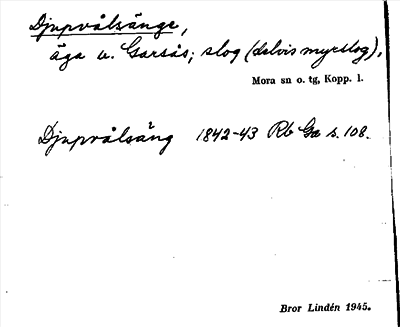 Djupvålsänge,
äga u. Garsås; slog (delvis myrslog).
Mora sn o. tg, Kopp. l.
Djupvålsäng 1842-43 Rb Ga s. 108.
Bror Lindén 1945.